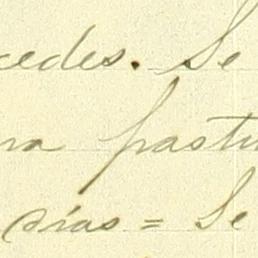 cedes. Se
ra pastu
dias = Se